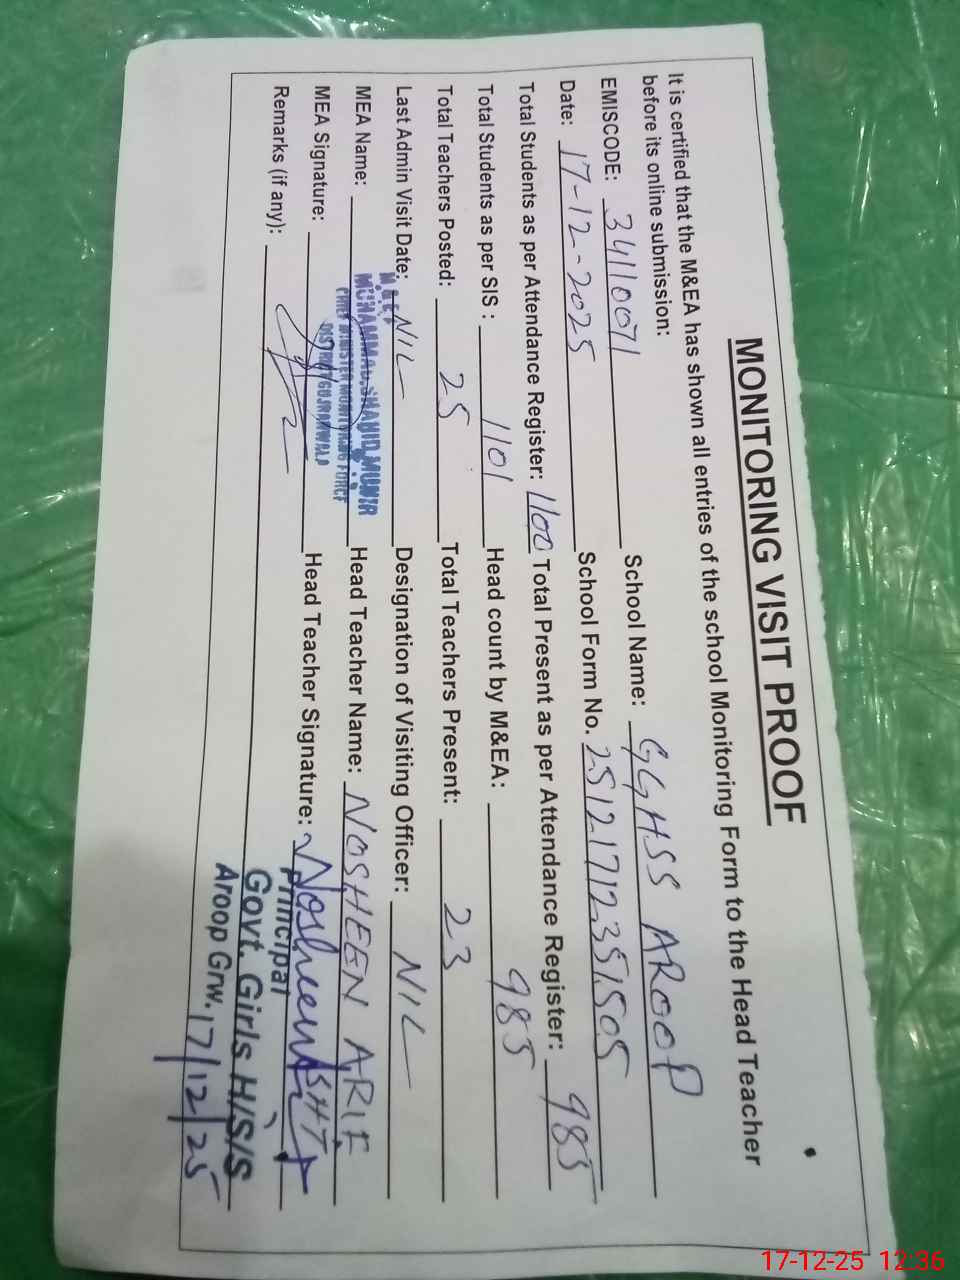 MONITORING VISIT PROOF
It is certified that the M&EA has shown all entries of the school Monitoring Form to the Head Teacher
before its online submission:
EMISCODE: 34110071 School Name: GGHSS AROOP
Date: 17-12-2025 School Form No. 25121712351505
Total Students as per Attendance Register: 1100 Total Present as per Attendance Register: 985
Total Students as per SIS : 1101 Head count by M&EA: 985
Total Teachers Posted: 25 Total Teachers Present: 23
Last Admin Visit Date: NIL Designation of Visiting Officer: NIL
MEA Name: MUHAMMAD SHAHID MUNIR Head Teacher Name: NOSHEEN ARIF
CHIEF MINISTER MONITORING FORCE
DISTRICT GUJRANWALA
MEA Signature: Head Teacher Signature: Nosheen
Remarks (if any):
Principal
Govt. Girls H/S/S
Aroop Grw. 17/12/25
17-12-25 12:36